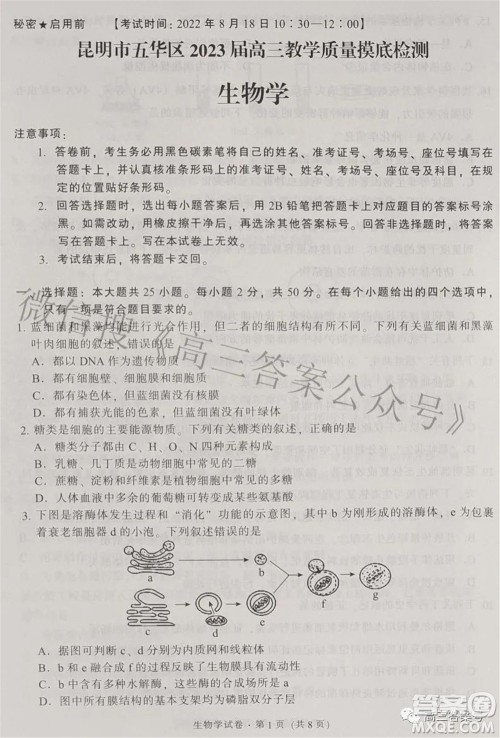 秘密★启用前 【考试时间：2022年8月18日10：30—12：00】
昆明市五华区2023届高三教学质量摸底检测
生物学
注意事项：
1. 答卷前，考生务必用黑色碳素笔将自己的姓名、准考证号、考场号、座位号填写在
答题卡上，并认真核准条形码上的准考证号、姓名、考场号、座位号及科目，在规
定的位置贴好条形码。
2. 回答选择题时，选出每小题答案后，用2B铅笔把答题卡上对应题目的答案标号涂
黑。如需改动，用橡皮擦干净后，再选涂其他答案标号。回答非选择题时，将答案
写在答题卡上。写在本试卷上无效。
3. 考试结束后，将答题卡交回。
一、选择题：本大题共25小题。每小题2分，共50分。在每小题给出的四个选项中，
只有一项是符合题目要求的。
1. 蓝细菌和黑藻均能进行光合作用，但二者的细胞结构有所不同。下列有关蓝细菌和黑藻
叶肉细胞的叙述，错误的是
A．都以DNA作为遗传物质
B．都有细胞壁、细胞膜和细胞质
C．都有染色体，但蓝细菌没有核膜
D．都有捕获光能的色素，但蓝细菌没有叶绿体
2. 糖类是细胞的主要能源物质。下列有关糖类的叙述，正确的是
A．糖类分子都由C、H、O、N四种元素构成
B．乳糖、几丁质是动物细胞中常见的二糖
C．蔗糖、淀粉和纤维素是植物细胞中常见的多糖
D．人体血液中大部分的葡萄糖可转变成某些氨基酸
3. 下图是溶酶体发生过程和“消化”功能的示意图，其中b为刚形成的溶酶体，e为包裹
着衰老细胞器d的小泡。下列叙述错误的是
a b c d e f
A．据图可判断c、d分别为内质网和线粒体
B．b和e融合成f的过程反映了生物膜具有流动性
C．b和e的膜结构的基本支架均为磷脂双分子层
生物学试卷·第1页（共8页）
微信搜《高三答案公众号》
高三答案号